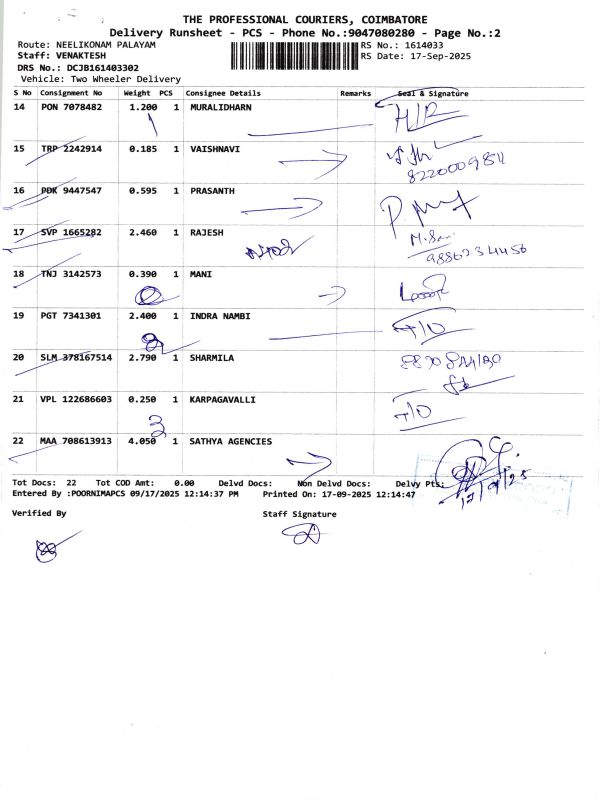 THE PROFESSIONAL COURIERS, COIMBATORE
Delivery Runsheet - PCS - Phone No.:9047080280 - Page No.:2
Route: NEELIKONAM PALAYAM
RS No.: 1614033
Staff: VENAKTESH
RS Date: 17-Sep-2025
DRS No.: DCJB161403302
Vehicle: Two Wheeler Delivery
S No Consignment No Weight PCS Consignee Details Remarks Seal & Signature
14 PON 7078482 1.200 1 MURALIDHARN
15 TRP 2242914 0.185 1 VAISHNAVI
16 PDK 9447547 0.595 1 PRASANTH
17 SVP 1665282 2.460 1 RAJESH
9886234456
18 TNJ 3142573 0.390 1 MANI
19 PGT 7341301 2.400 1 INDRA NAMBI
20 SLM 378167514 2.790 1 SHARMILA
21 VPL 122686603 0.250 1 KARPAGAVALLI
22 MAA 708613913 4.050 1 SATHYA AGENCIES
Tot Docs: 22 Tot COD Amt: 0.00 Delvd Docs: Non Delvd Docs: Delvy Pts:
Entered By :POORNIMAPCS 09/17/2025 12:14:37 PM Printed On: 17-09-2025 12:14:47
17/9/25
Verified By Staff Signature